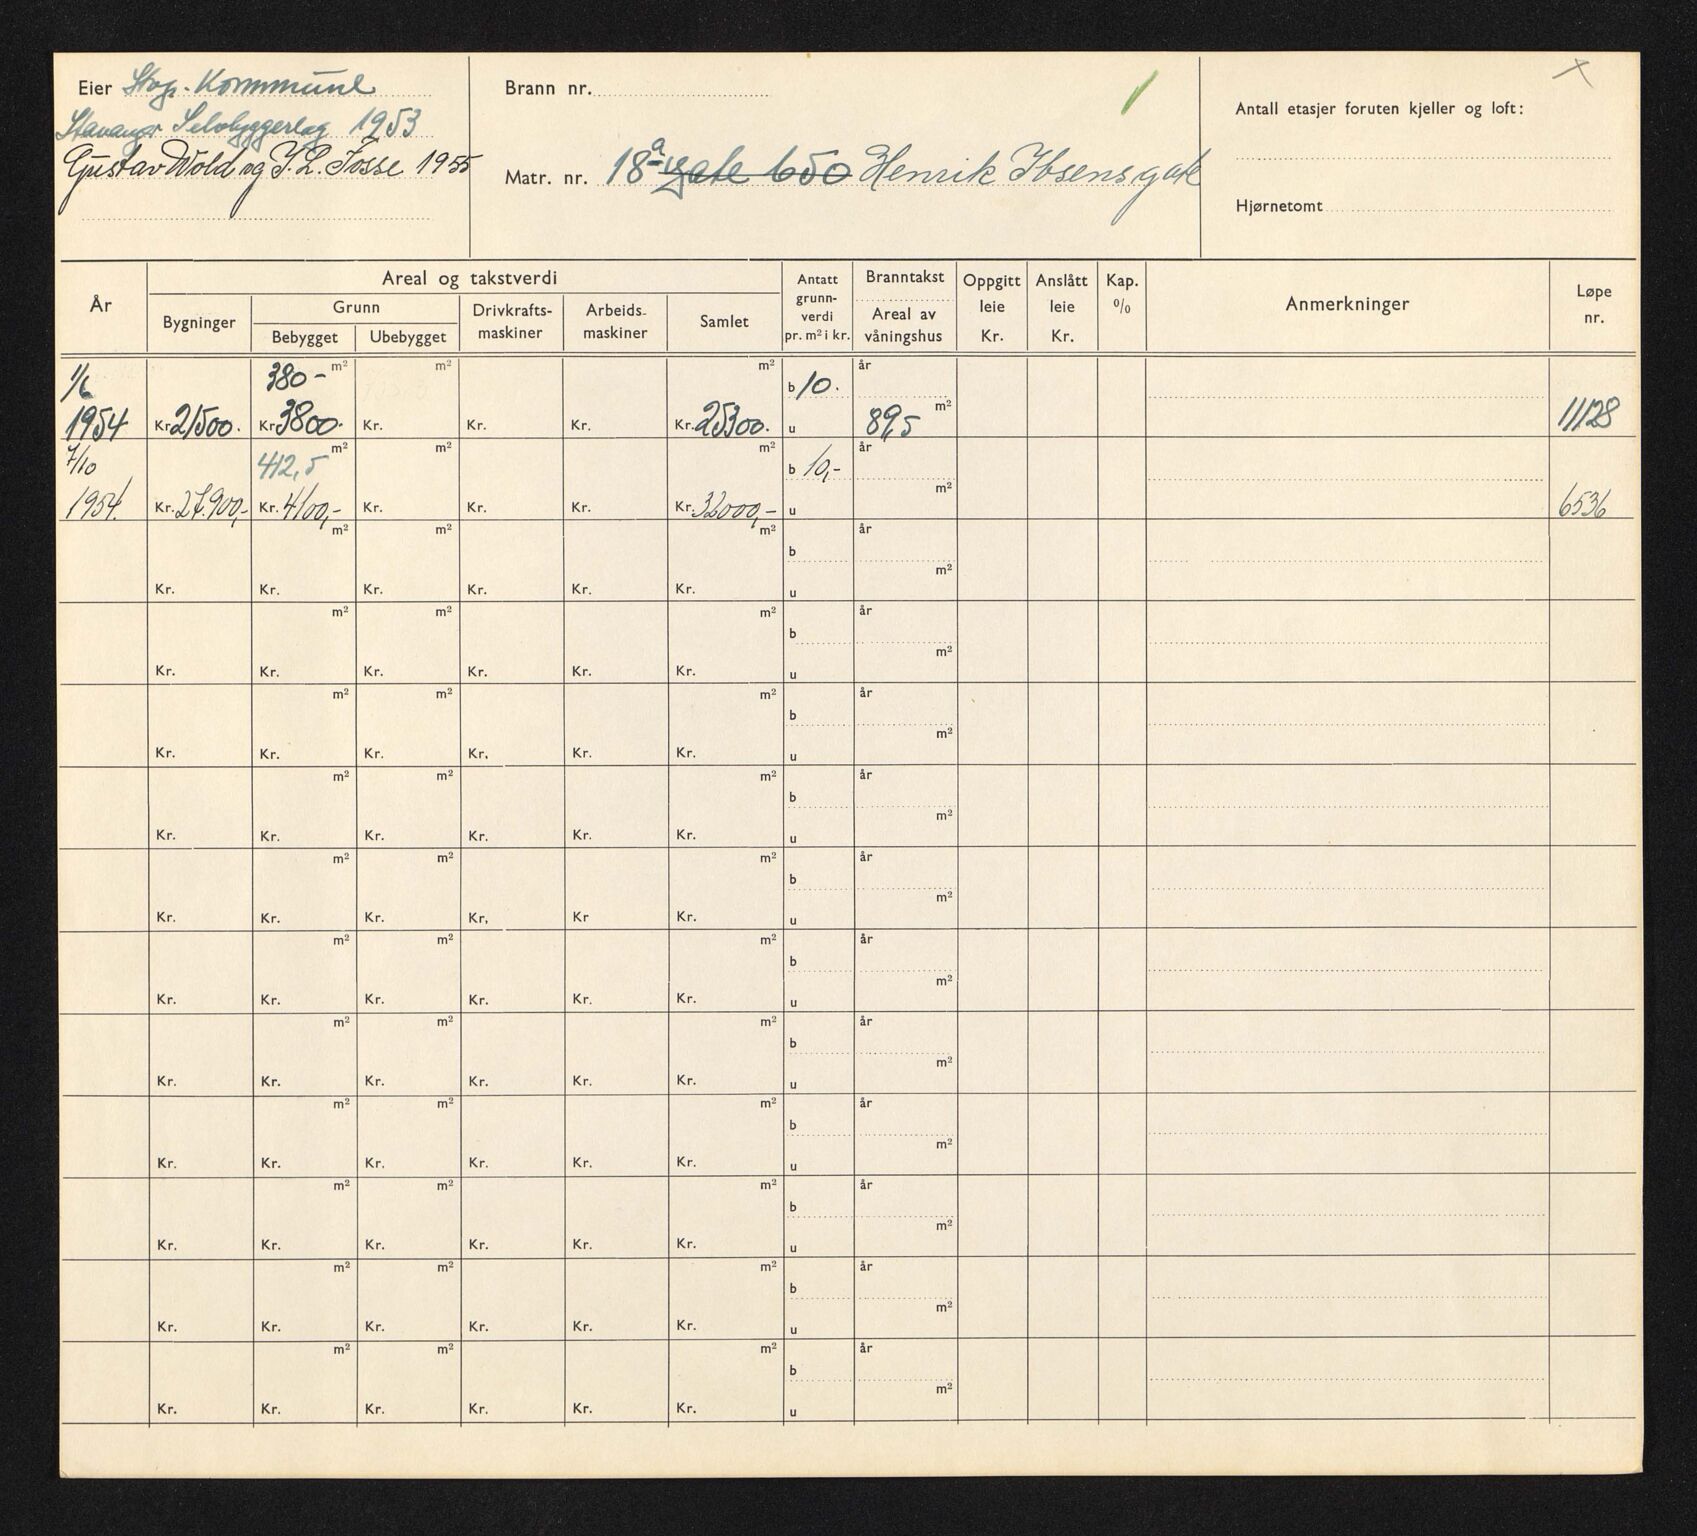 Eier Stvgr. Kommune
Stavanger Selvbyggerlag 1953
Gustav Wold og J. L. Fosse 1955
Brann nr.
Matr. nr. 18a gate 650 Henrik Ibsens gate
Antall etasjer foruten kjeller og loft:
Hjørnetomt
År
Areal og takstverdi
Bygninger
Grunn
Bebygget Ubebygget
Drivkrafts-
maskiner
Arbeids-
maskiner
Samlet
Antatt
grunn-
verdi
pr. m² i kr.
Branntakst
Areal av
våningshus
Oppgitt
leie
Kr.
Anslått
leie
Kr.
Kap.
%
Anmerkninger
Løpe
nr.
1/6 380 - m² m² m² b 10. år
1954 Kr. 21500. Kr. 3800. Kr. Kr. Kr. Kr. 25300. u 89,5 m² 11128
7/10 412,5 m² m² m² b 10,- år
1954. Kr. 27.900,- Kr. 4100,- Kr. Kr. Kr. Kr. 32000,- u m² 6536
m² m² m² b år
Kr. Kr. Kr. Kr. Kr. Kr. u m²
m² m² m² b år
Kr. Kr. Kr. Kr. Kr. Kr. u m²
m² m² m² b år
Kr. Kr. Kr. Kr. Kr. Kr. u m²
m² m² m² b år
Kr. Kr. Kr. Kr. Kr. Kr. u m²
m² m² m² b år
Kr. Kr. Kr. Kr, Kr Kr. u m²
m² m² m² b år
Kr. Kr. Kr. Kr. Kr. Kr. u m²
m² m² m² b år
Kr. Kr. Kr. Kr. Kr. Kr. u m²
m² m² m² b år
Kr. Kr. Kr. Kr. Kr. Kr. u m²
m² m² m² b år
Kr. Kr. Kr. Kr. Kr. Kr. u m²
m² m² m² b år
Kr. Kr. Kr. Kr. Kr. Kr. u m²
m² m² m² b år
Kr. Kr. Kr. Kr. Kr. Kr. u m²